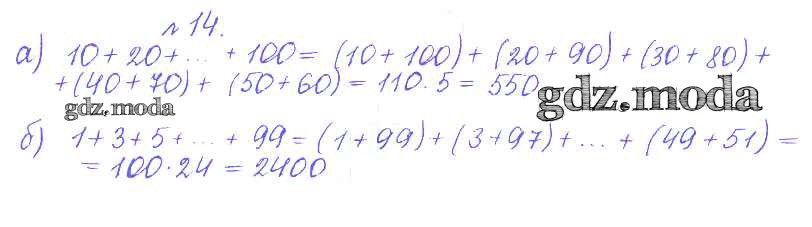 № 14.
а) 10 + 20 + ... + 100 = (10 + 100) + (20 + 90) + (30 + 80) +
+ (40 + 70) + (50 + 60) = 110 · 5 = 550
gdz.moda
gdz.moda
б) 1 + 3 + 5 + ... + 99 = (1 + 99) + (3 + 97) + ... + (49 + 51) =
= 100 · 24 = 2400